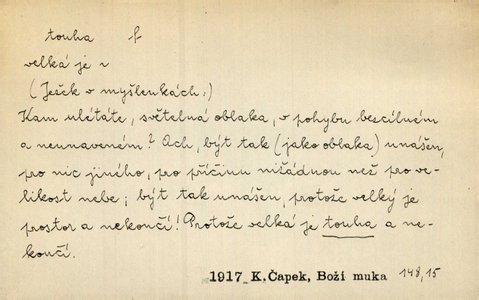 touha f
velká je ~
(Ješek v myšlenkách:)
Kam ulétáte, světelná oblaka, v pohybu bescílném
a neunaveném? Ach, být tak (jako oblaka) unášen,
pro nic jiného, pro příčinu nižádnou než pro ve-
likost nebe; být tak unášen, protože velký je
prostor a nekončí! Protože velká je touha a ne-
končí.
1917 K.Čapek, Boží muka 148,15